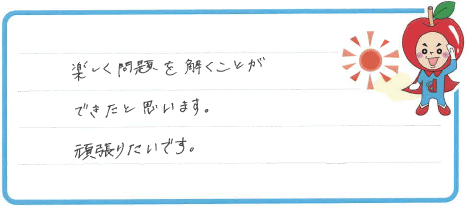 楽しく問題を解くことが
できたと思います。
頑張りたいです。